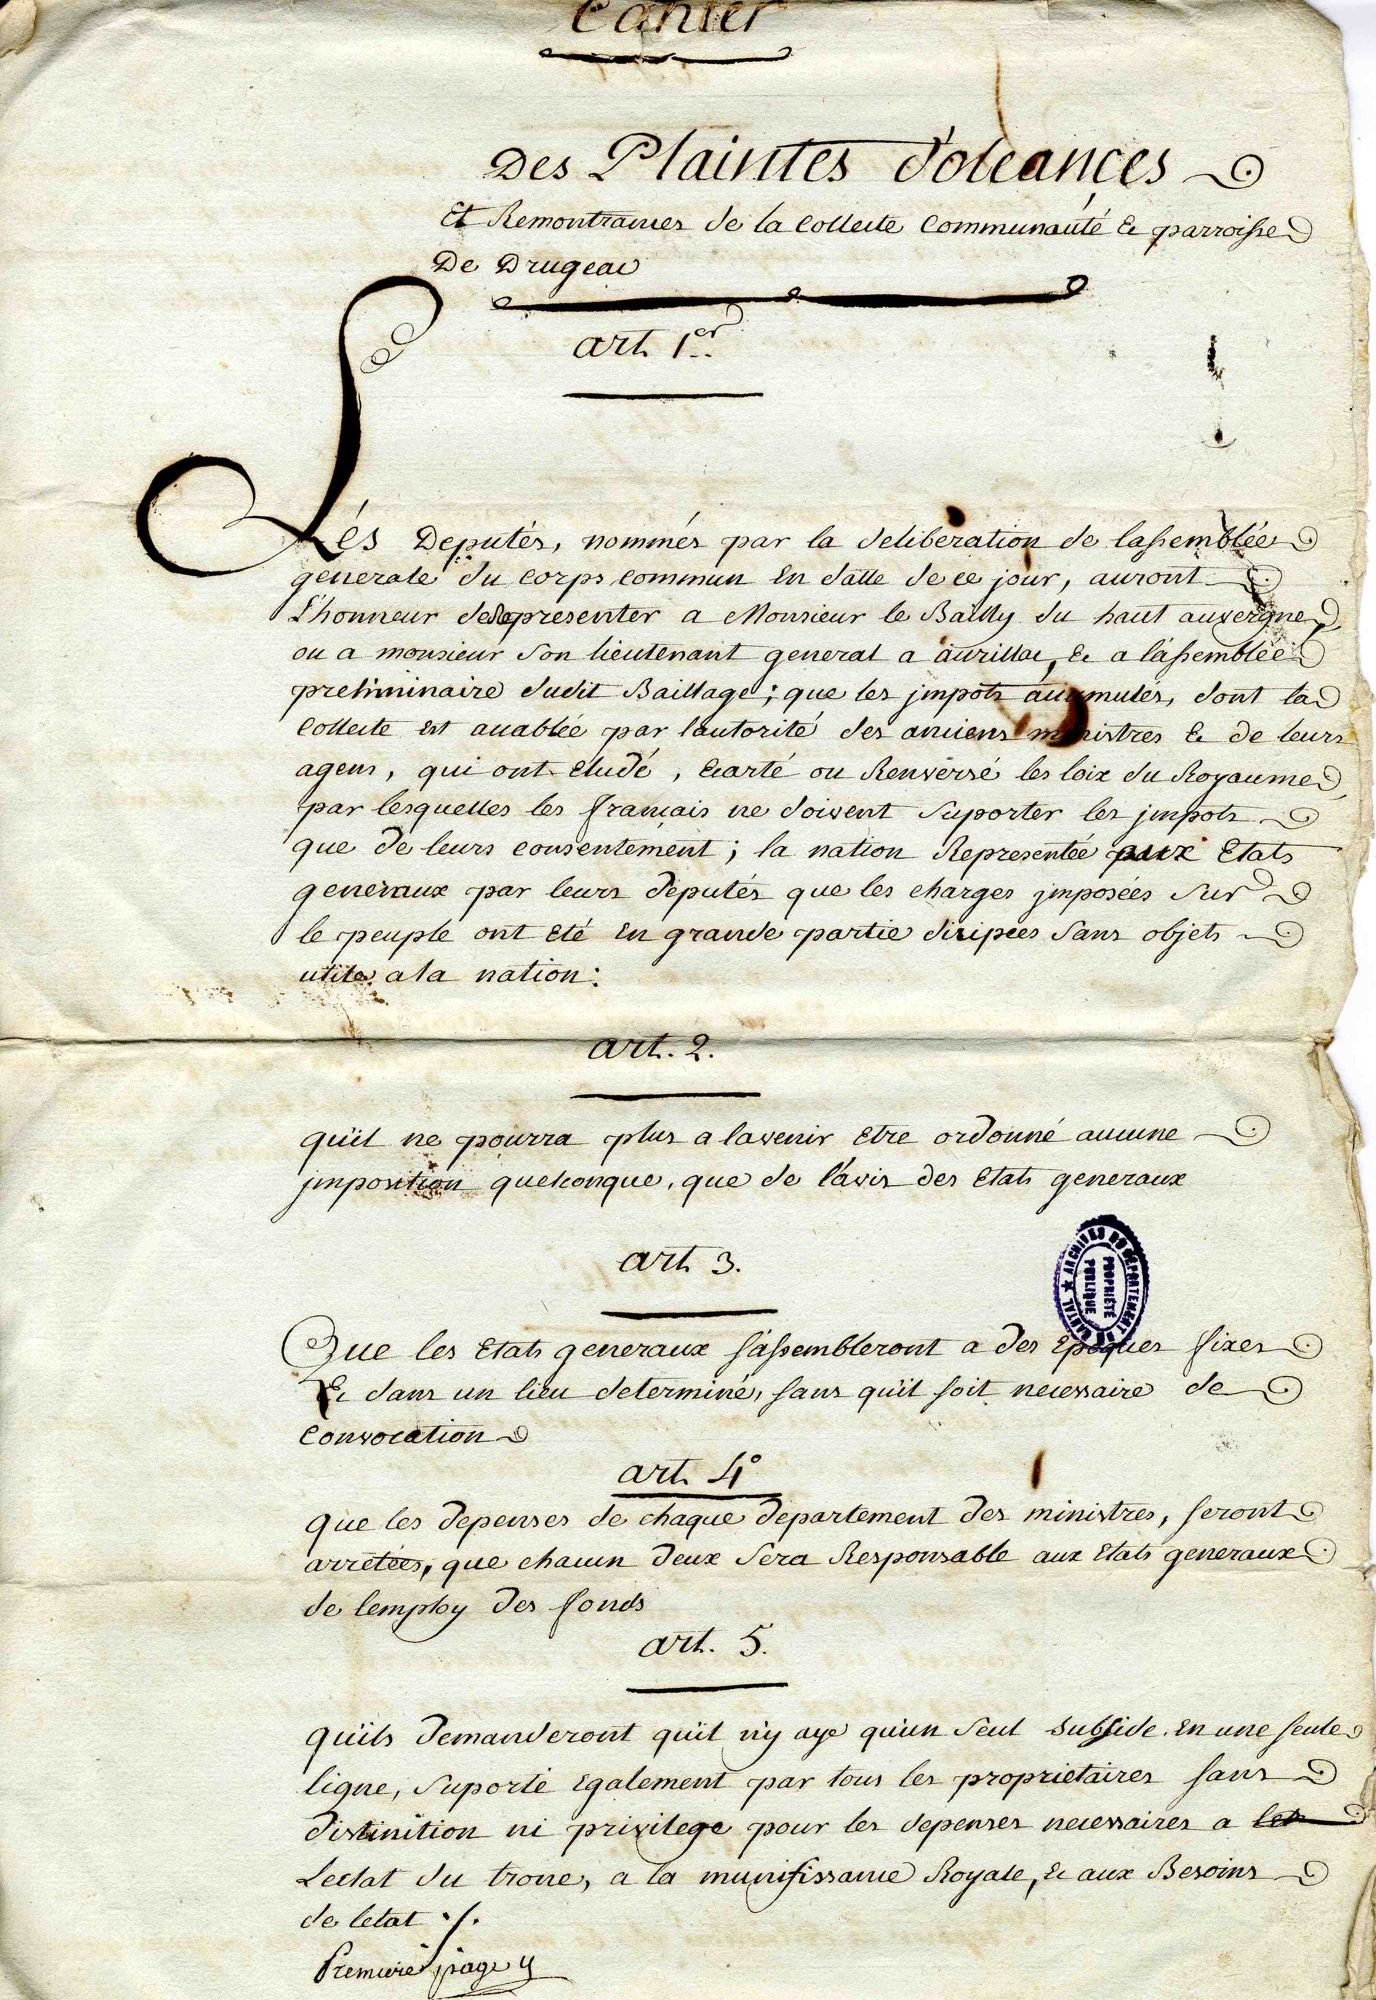 Cahier
Des Plaintes doleances
Et Remontrances de la Collecte Communauté & parroisse
De Drugeac
art. 1er
Les Deputés, nommés par la deliberation de lassemblée
generale du corps commun En datte de ce jour, auront
L'honneur de Representer a Monsieur le Bailly du haut auvergne,
ou a monsieur Son lieutenant general a aurillac, & a lassemblée
preliminaire dudit Baillage; que les jmpots accumulés, dont la
Collecte Est accablée par lautorité des anciens ministres & de leurs
agens, qui ont Eludé, Ecarté ou Renversé les loix du Royaume
par lesquelles les français ne doivent Suporter les jmpots
que de leurs consentement; la nation Representée aux Etats
generaux par leurs deputés que les charges jmposées Sur
le peuple ont Eté En grande partie disipées Sans objets
utile a la nation:
art. 2.
quil ne pourra plus a lavenir Etre ordonné aucune
jmposition quelconque, que de l'avis des Etats generaux
art. 3.
Que les Etats generaux s'assembleront a des Epoques fixes
& dans un lieu determiné, sans qu'il soit necessaire de
Convocation
ARCHIVES DU DÉPARTEMENT DU CANTAL
PROPRIÉTÉ
PUBLIQUE
art. 4°
que les depenses de chaque departement des ministres, seront
arretées, que chacun deux Sera Responsable aux Etats generaux
de lemploy des fonds
art. 5.
quils demanderont quil n'y aye qu'un Seul Subside En une seule
ligne, Suporté Egalement par tous les proprietaires sans
distinction ni privilege pour les depenses necessaires a les
Leclat du trone, a la munifissance Royale, & aux Besoins
de letat ./.
Premiere page